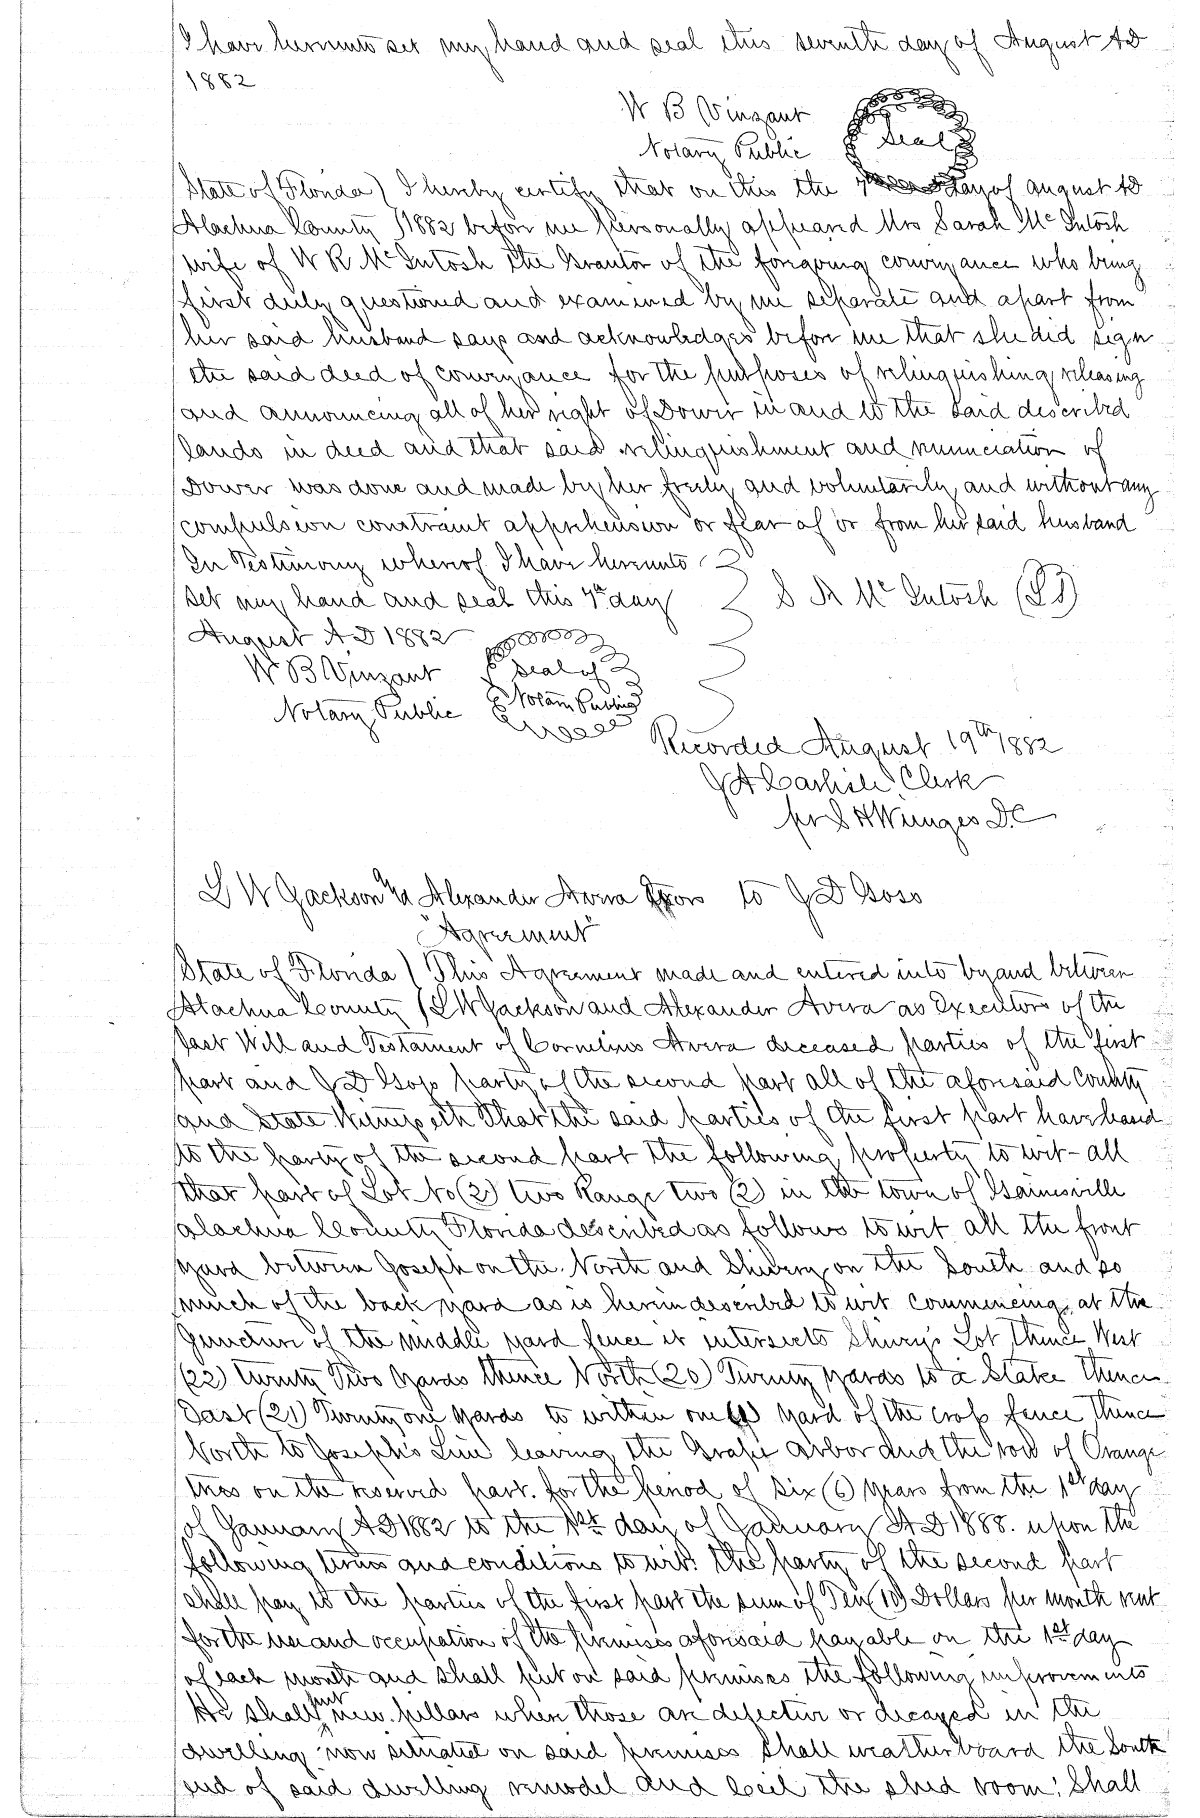 I have hereunto set my hand and seal this seventh day of August AD
1882
W B Vinzant
Notary Public
Seal
State of Florida ) I hereby certify that on this the 7th day of august AD
Alachua County ) 1882 before me personally appeared Mrs Sarah McIntosh
wife of W R McIntosh the Grantor of the foregoing conveyance who being
first duly questioned and examined by me separate and apart from
her said husband says and acknowledges before me that she did sign
the said deed of conveyance for the purposes of relinquishing releasing
and announcing all of her right of Dower in and to the said described
lands in deed and that said relinquishment and renunciation of
Dower was done and made by her freely and voluntarily and without any
compulsion constraint apprehension or fear of or from her said husband
In Testimony whereof I have hereunto
set my hand and seal this 7th day
August AD 1882
S A McIntosh (LS)
W B Vinzant
Notary Public
Seal of
Notary Public
Recorded August 19th 1882
J A Carlisle Clerk
pr S H Wienges D.C
L W Jackson &
Alexander Avera Exors to J D Goss
"Agreement"
State of Florida ) This Agreement made and entered into by and between
Alachua County ) L W Jackson and Alexander Avera as Executors of the
Last Will and Testament of Cornelius Avera deceased parties of the first
part and J D Goss party of the second part all of the aforesaid County
and State Witnesseth That the said parties of the first part have leased
to the party of the second part the following property to wit - all
that part of Lot No (2) two Range two (2) in the town of Gainesville
Alachua County Florida described as follows to wit all the front
yard between Joseph on the North and Shivery on the South and so
much of the back yard as is herein described to wit commencing at the
Juncture of the middle yard fence it intersects Shivry's Lot Thence West
(22) twenty Two Yards thence North (20) Twenty yards to a Stake thence
East (21) Twenty one yards to within one (1) yard of the cross fence Thence
North to Joseph's Line leaving the Grape arbor and the row of Orange
trees on the reserved part. for the period of six (6) years from the 1st day
of January AD 1882 to the 1st day of January AD 1888. upon the
following terms and conditions to wit: the party of the second part
shall pay to the parties of the first part the sum of Ten (10) Dollars per month rent
for the use and occupation of the premises aforesaid payable on the 1st day
of each month and shall put on said premises the following improvements
He shall put new pillars where those are defective or decayed in the
dwelling now situated on said premises Shall weatherboard the South
end of said dwelling remodel and Ceil the shed room: Shall